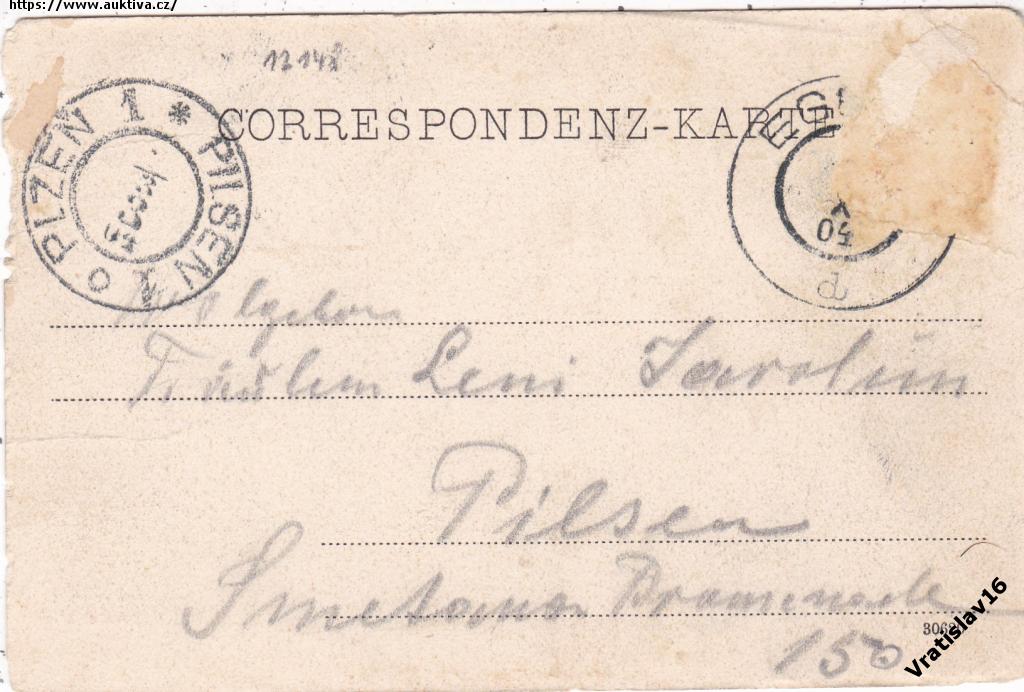 https://www.auktiva.cz/
12148
CORRESPONDENZ-KARTE
PLZEN 1 * PILSEN 1
EG
04
d
Fräulein Leni
Pilsen
Smetana Promenade
150
Vratislav16